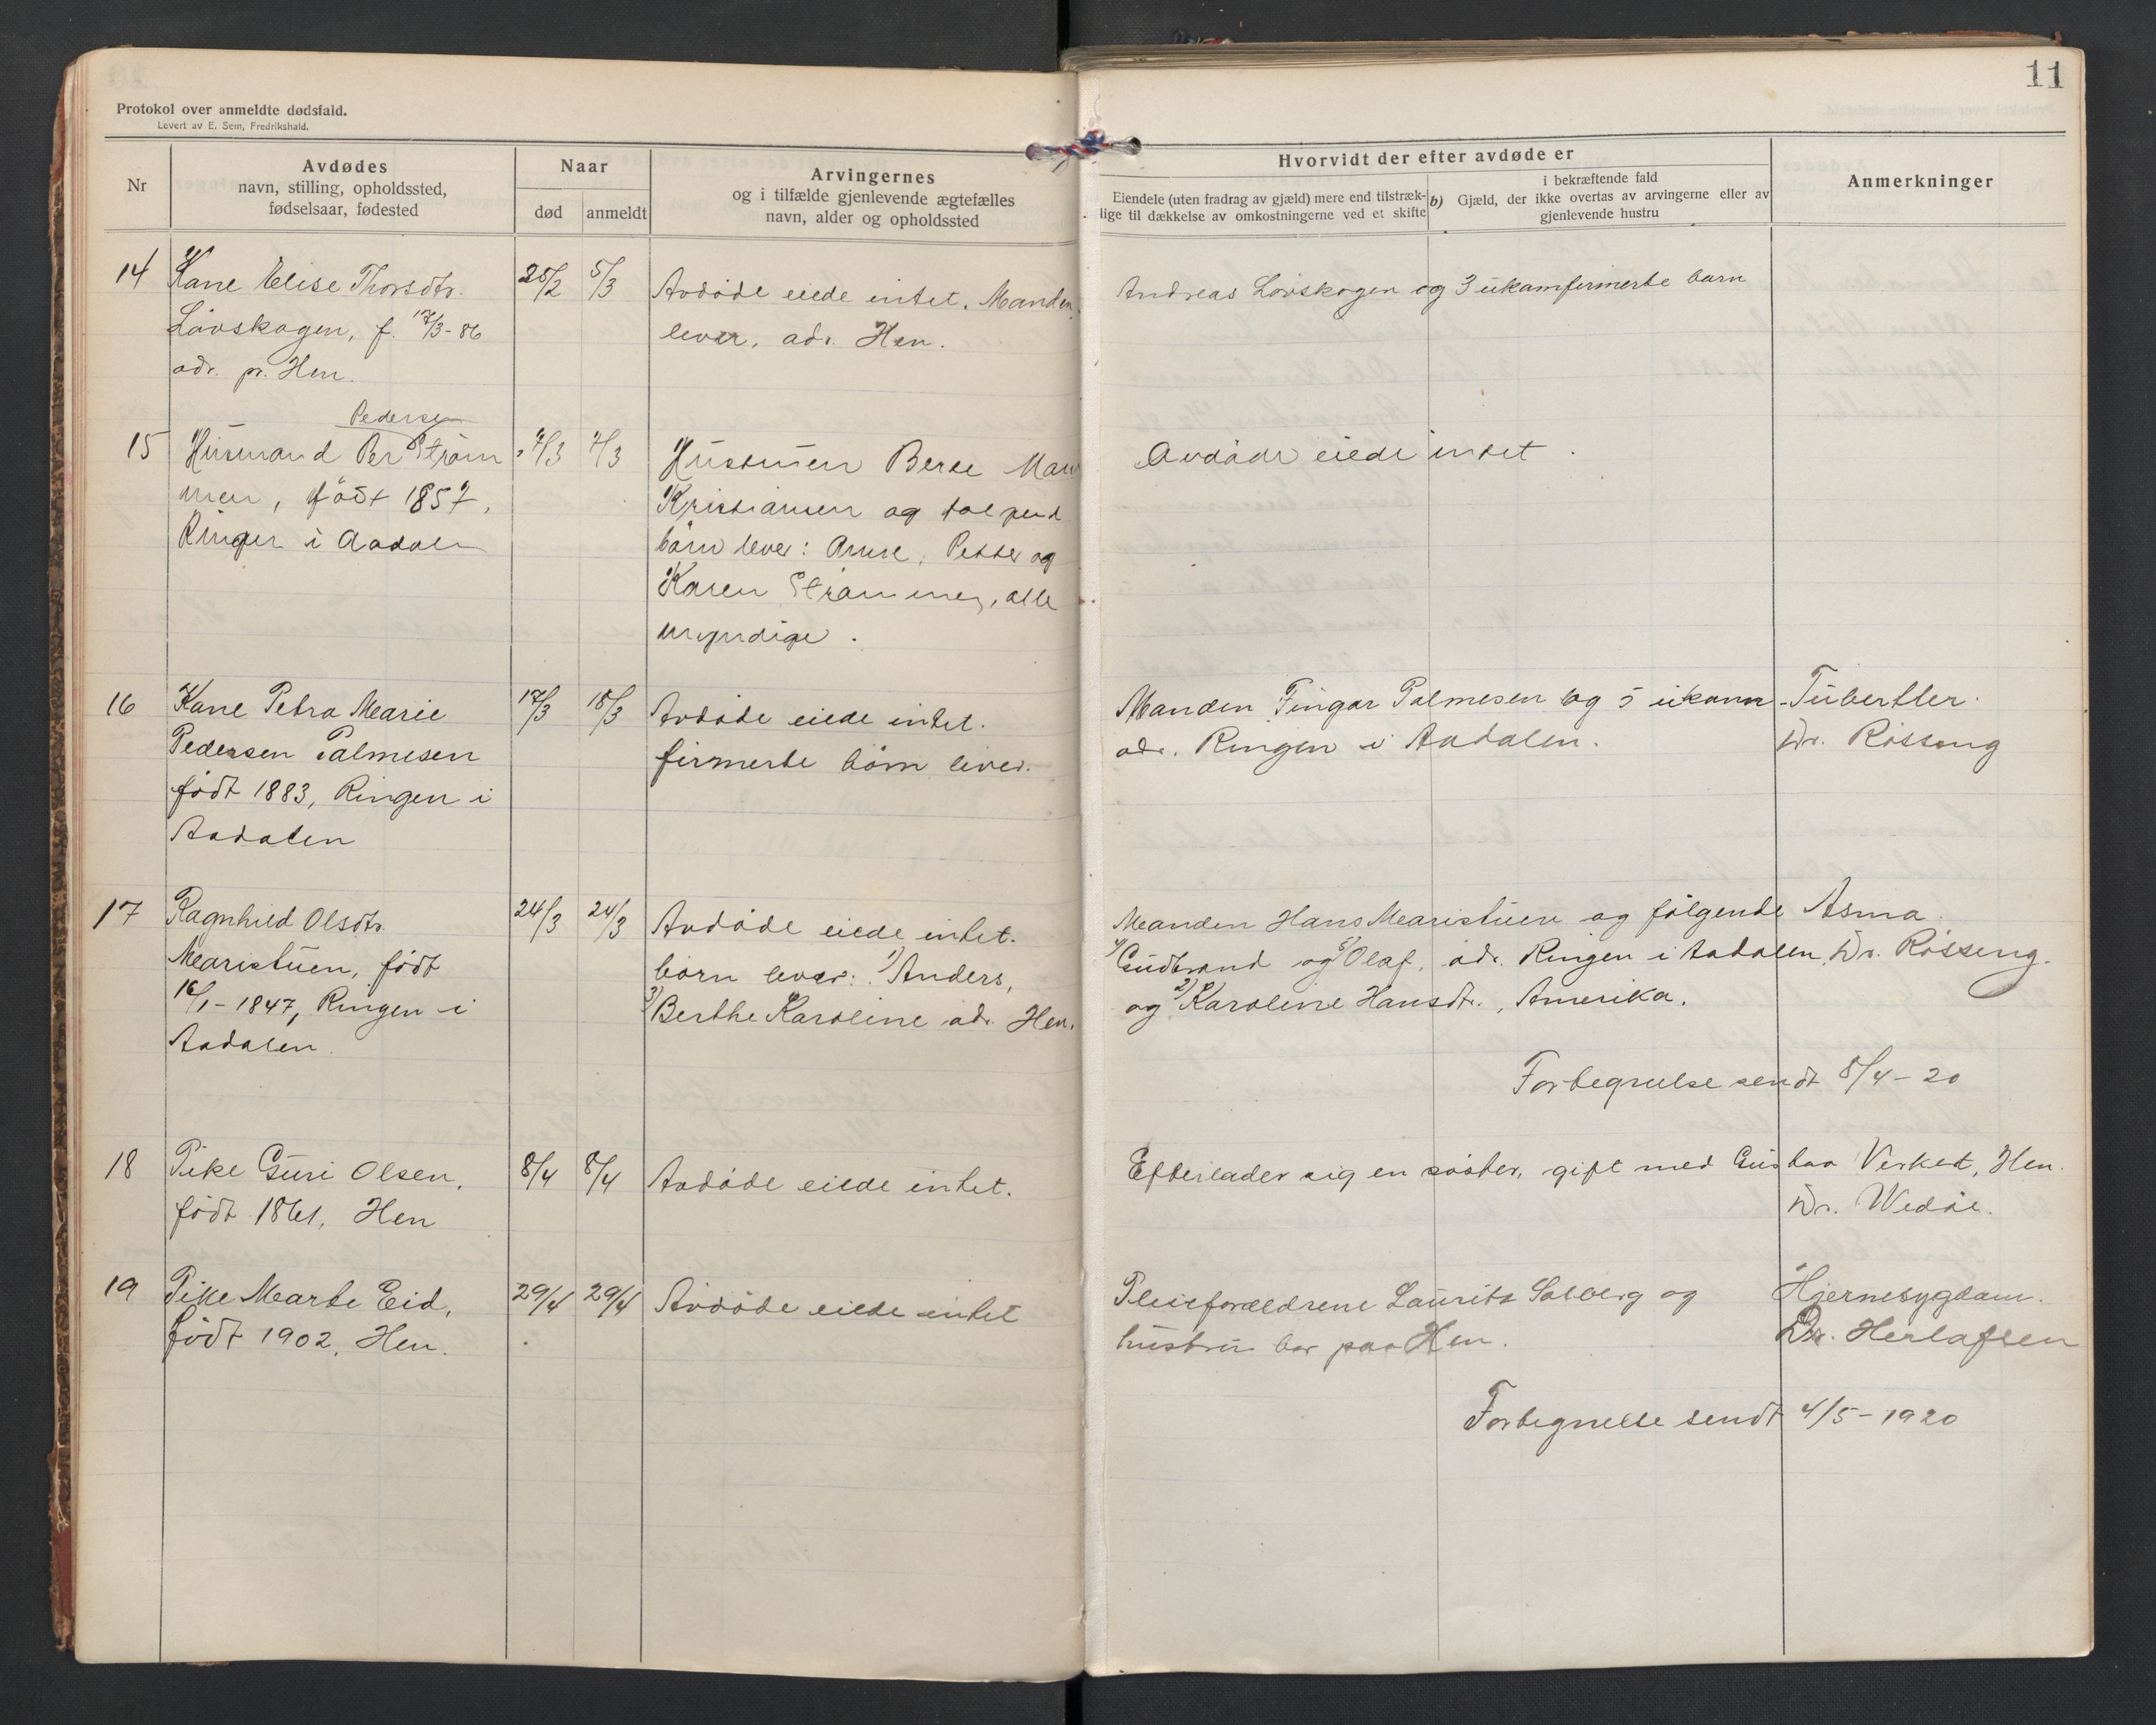 11
Protokol over anmeldte dødsfald.
Levert av E. Sem, Fredrikshald.
Nr
Avdødes
navn, stilling, opholdssted,
fødselsaar, fødested
Naar
død
anmeldt
Arvingernes
og i tilfælde gjenlevende ægtefælles
navn, alder og opholdssted
Hvorvidt der efter avdøde er
Eiendele (uten fradrag av gjæld) mere end tilstræk-
lige til dækkelse av omkostningerne ved et skifte
i bekræftende fald
b) Gjæld, der ikke overtas av arvingerne eller av
gjenlevende hustru
Anmerkninger
14 Kone Elise Thorsdtr. 25/2 5/3 Avdöde eiede intet. Manden Andreas Lövskogen og 3 ukomfirmerte barn
Lövskogen, f. 17/3-86 lever, adr. Hen.
adr. pr. Hen.
Pedersen
15 Husmand Per Ström 7/3 7/3 Hustruen Berte Mari Avdöde eiede intet.
men, födt 1857, Kristiansen og
Ringer i Aadalen börn lever: Anne, Petter og
Karen Strömmen, alle
myndige.
16 Kone Petra Marie 17/3 18/3 Avdöde eiede intet. Manden Fingar Palmesen og 5 ukom- Tuberkler.
Pedersen Palmesen firmerte börn lever. adr. Ringen i Aadalen. Dr. Rösseng
födt 1883, Ringen i
Aadalen
17 Ragnhild Olsdtr. 24/3 24/3 Avdöde eiede intet. Manden Hans Maristuen og fölgende Asma.
Maristuen, födt börn lever: 1) Anders, 4) Gudbrand og 5) Olaf, adr. Ringen i Aadalen, Dr. Rösseng.
16/1-1847, Ringen i 3) Berthe Karoline adr. Hen. og 2) Karoline Hansdtr., Amerika.
Aadalen.
Fortegnelse sendt 8/4-20
18 Pike Guri Olsen, 8/4 8/4 Avdöde eiede intet. Efterlader sig en söster, gift med Gustav Verket, Hen.
födt 1861, Hen Dr. Wedöe.
19 Pike Marte Eid, 29/4 29/4 Avdöde eiede intet Pleieforældrene Laurits Solberg og Hjernesygdom.
födt 1902, Hen. hustru bor paa Hen. Dr. Herlofsen
Fortegnelse sendt 4/5-1920